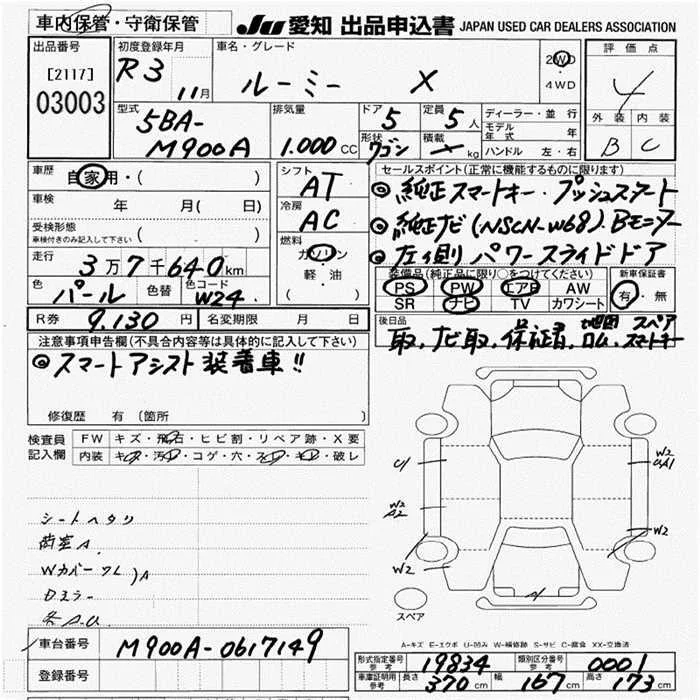 車内保管・守衛保管
JU 愛知 出品申込書 JAPAN USED CAR DEALERS ASSOCIATION
出品番号
[2117]
03003
初度登録年月
R3 11月
車名・グレード
ルーミー X
2WD
・
4WD
評価点
4
外装 内装
B C
型式
5BA-
M900A
排気量
1.000 CC
ドア 5
形状 ワゴン
定員 5 人
積載 kg
ディーラー・並行
モデル年式 年
ハンドル 左・右
車歴 自家用・( )
車検 年 月( 日)
受検形態
車検付きのみ記入して下さい ( )
走行 3万7千640km
色 パール 色替 色コード W24
シフト
AT
冷房
AC
燃料
ガソリン
・
軽・油
( )
セールスポイント(正常に機能するものに限ります)
◎ 純正スマートキー・プッシュスタート
◎ 純正ナビ(NSCN-W68).Bモニター
◎ 左側パワースライドドア
装備品(純正品に限り○をつけてください)
PS PW エアB AW
SR ナビ TV カワシート
新車保証書
有・無
R券 9.130 円 名変期限 月 日
後日品
取.ナビ取.保証書.地図ロム.スペアスマートキー
注意事項申告欄(不具合内容等は具体的に記入して下さい)
◎ スマートアシスト装着車!!
修復歴 有 〔箇所
検査員
記入欄
FW キズ・飛石・ヒビ割・リペア跡・X要
内装 キズ・汚レ・コゲ・穴・スレ・キレ・破レ
シートヘタリ
荷室A
Wカバー
)A
Dミラー
各A.U
U1
W2
A2
W2
W2
UA1
W2
A1
スペア
A-キズ E-エクボ U-凹み W-補修跡 S-サビ C-腐食 XX-交換済
車台番号 M900A-0617149
登録番号
形式指定番号 参考 19834 類別区分番号 参考 0001
車庫証明用 参考 長さ 370 cm 幅 167 cm 高さ 173 cm